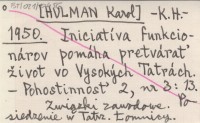 [HULMAN Karol] -K.H.-
1950. Iniciatíva funkcio-
nárov pomáha pretvárať
život vo Vysokých Tatrách.
- Pohostinnosť 2, nr 3: 13.
Związki zawodowe. Po-
siedzenie w Tatrz. Łomnicy.